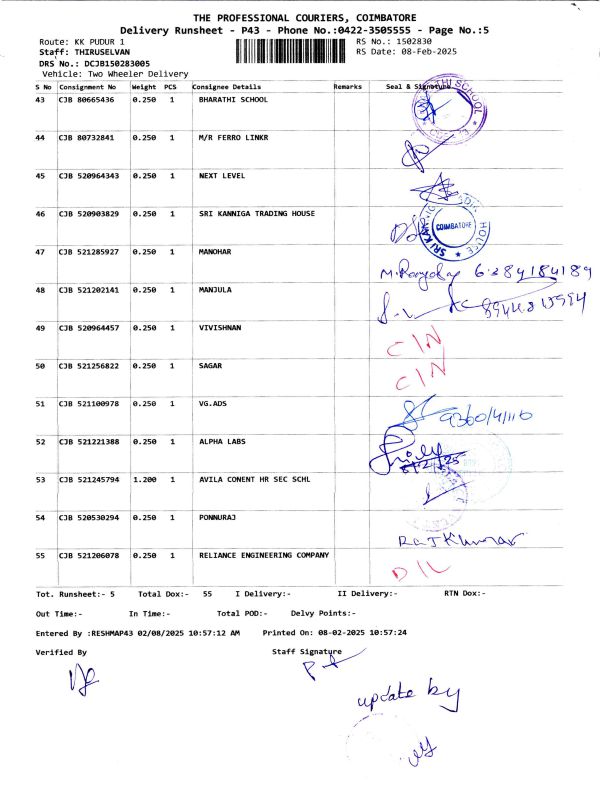 THE PROFESSIONAL COURIERS, COIMBATORE
Delivery Runsheet - P43 - Phone No.:0422-3505555 - Page No.:5
Route: KK PUDUR 1 RS No.: 1502830
Staff: THIRUSELVAN RS Date: 08-Feb-2025
DRS No.: DCJB150283005
Vehicle: Two Wheeler Delivery
S No Consignment No Weight PCS Consignee Details Remarks Seal & Signature
43 CJB 80665436 0.250 1 BHARATHI SCHOOL
44 CJB 80732841 0.250 1 M/R FERRO LINKR
45 CJB 520964343 0.250 1 NEXT LEVEL
46 CJB 520903829 0.250 1 SRI KANNIGA TRADING HOUSE COIMBATORE
47 CJB 521285927 0.250 1 MANOHAR 6284184189
48 CJB 521202141 0.250 1 MANJULA
49 CJB 520964457 0.250 1 VIVISHNAN C/N
50 CJB 521256822 0.250 1 SAGAR C/N
51 CJB 521100978 0.250 1 VG.ADS
52 CJB 521221388 0.250 1 ALPHA LABS
53 CJB 521245794 1.200 1 AVILA CONENT HR SEC SCHL
54 CJB 520530294 0.250 1 PONNURAJ RajKumar
55 CJB 521206078 0.250 1 RELIANCE ENGINEERING COMPANY D/L
Tot. Runsheet:- 5 Total Dox:- 55 I Delivery:- II Delivery:- RTN Dox:-
Out Time:- In Time:- Total POD:- Delvy Points:-
Entered By :RESHMAP43 02/08/2025 10:57:12 AM Printed On: 08-02-2025 10:57:24
Verified By Staff Signature
update by